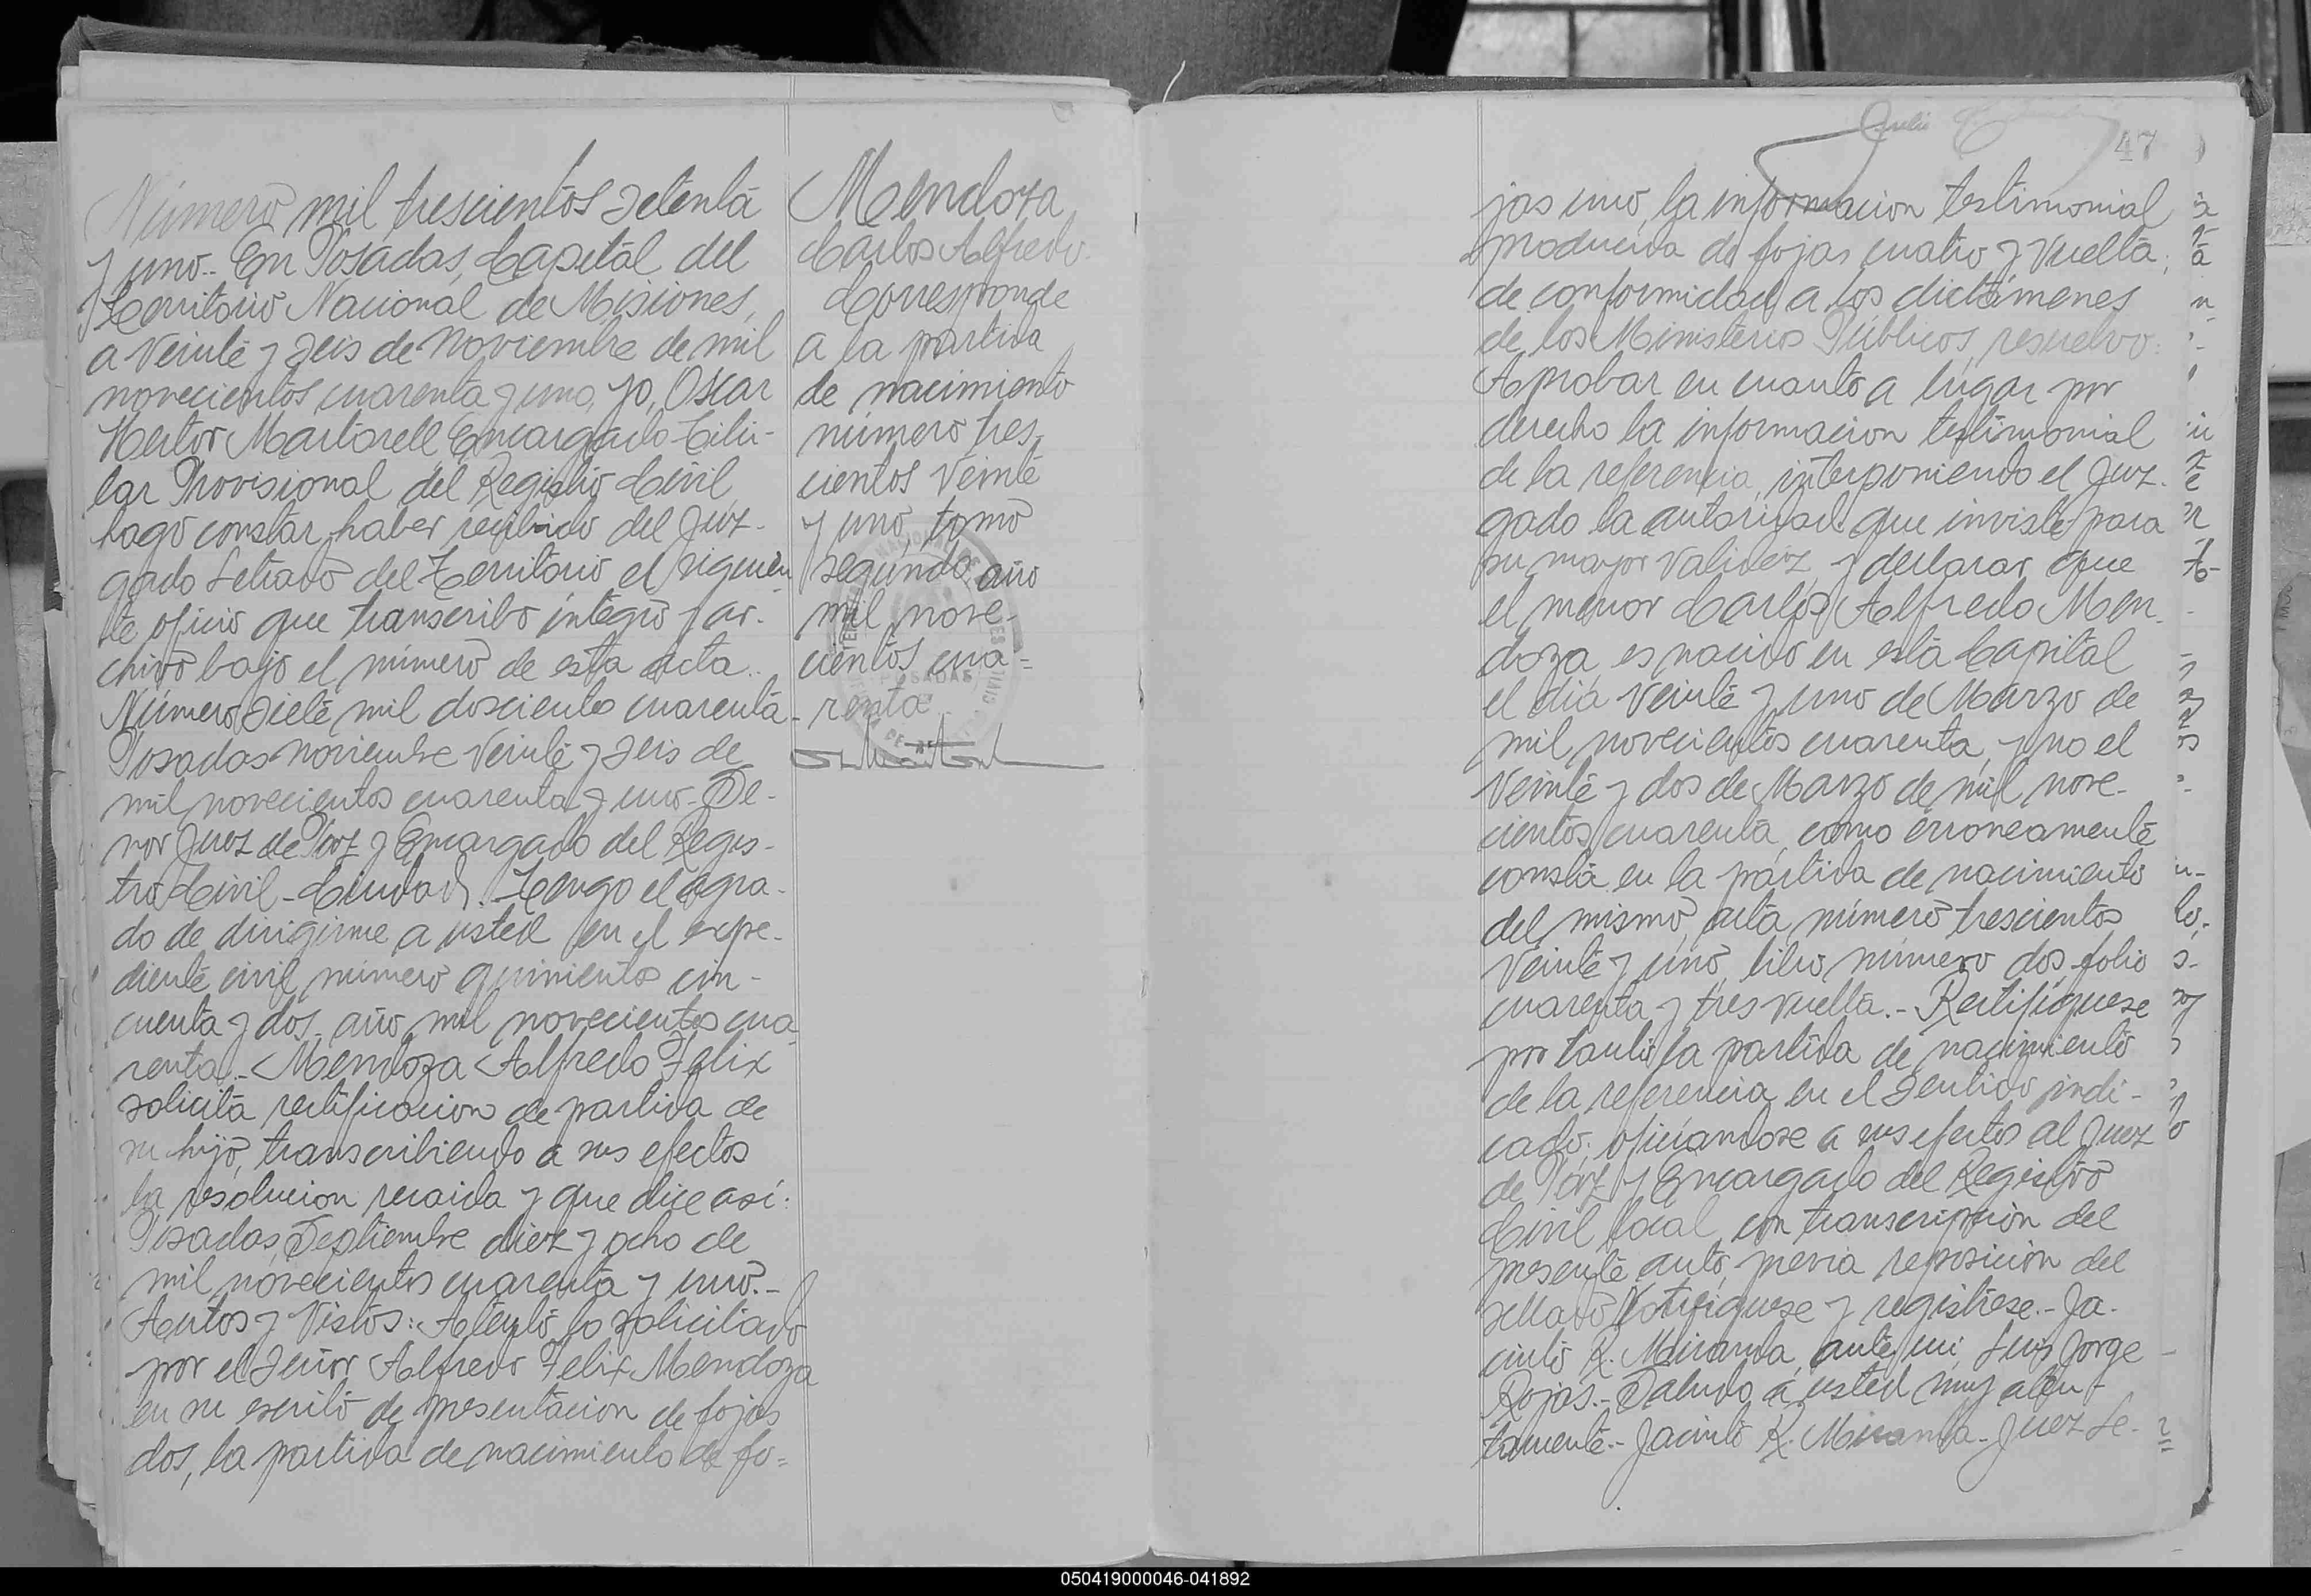 Número mil trescientos setenta
y uno.- En Posadas, Capital del
Territorio Nacional de Misiones,
a veinte y seis de Noviembre de mil
novecientos cuarenta y uno, yo, Oscar
Hector Martorell Encargado Titu-
lar Provisional del Registro Civil,
hago constar, haber recibido del Juz-
gado Letrado del Territorio el siguien-
te oficio que transcribo íntegro y ar-
chivo bajo el número de esta acta.-
Número siete mil doscientos cuarenta-
Posadas noviembre veinte y seis de
mil novecientos cuarenta y uno- Se-
ñor Juez de Paz y Encargado del Regis-
tro Civil - Ciudad. Tengo el agra-
do de dirigirme a usted en el expe-
diente civil número quinientos cin-
cuenta y dos, año mil novecientos cua
renta.- Mendoza Alfredo Felix
solicita rectificacion de partida de
su hijo, transcribiendo a sus efectos
la resolucion recaida y que dice así:
Posadas, Septiembre diez y ocho de
mil novecientos cuarenta y uno.-
Autos y Vistos: Atento lo solicitado
por el señor Alfredo Felix Mendoza
en su escrito de presentacion de fojas
dos, la partida de nacimiento de fo=
Mendoza
Carlos Alfredo.
Corresponde
a la partida
de nacimiento
número tres-
cientos veinte
y uno, tomo
segundo, año
mil nove-
cientos cua=
renta
POSADAS
47
jas uno, la informacion testimonial
producida de fojas cuatro y vuelta;
de conformidad a los dictámenes
de los Ministerios Públicos, resuelvo:
Aprobar en cuanto a lugar por
derecho la informacion testimonial
de la referencia, interponiendo el Juz-
gado la autoridad que inviste para
su mayor validez, y declarar que
el menor Carlos Alfredo Men-
doza, es nacido en esta Capital
el dia veinte y uno de Marzo de
mil novecientos cuarenta, y no el
veinte y dos de Marzo de mil nove-
cientos cuarenta, como erroneamente
consta en la partida de nacimiento
del mismo, acta número trescientos
veinte y uno, libro número dos, folio
cuarenta y tres vuelta.- Rectifiquese
por tanto la partida de nacimiento
de la referencia en el sentido indi-
cado; oficiandose a sus efectos al Juez
de Paz y Encargado del Registro
Civil local, con transcripción del
presente auto, previa reposición del
sellado Notifíquese y regístrese.- Ja-
cinto R. Miranda, ante mi, Luis Jorge
Rojas.- Saludo a usted muy aten-
tamente.- Jacinto R. Miranda- Juez Le-
050419000046-041892